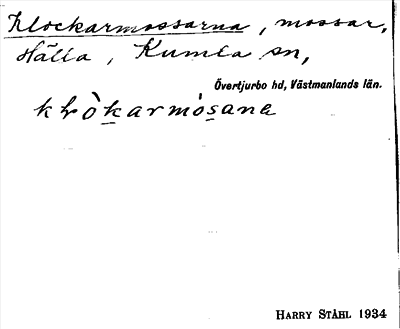 Klockarmossarna, mossar,
Hälla, Kumla sn,
Övertjurbo hd, Västmanlands län.
HARRY STÅHL 1934